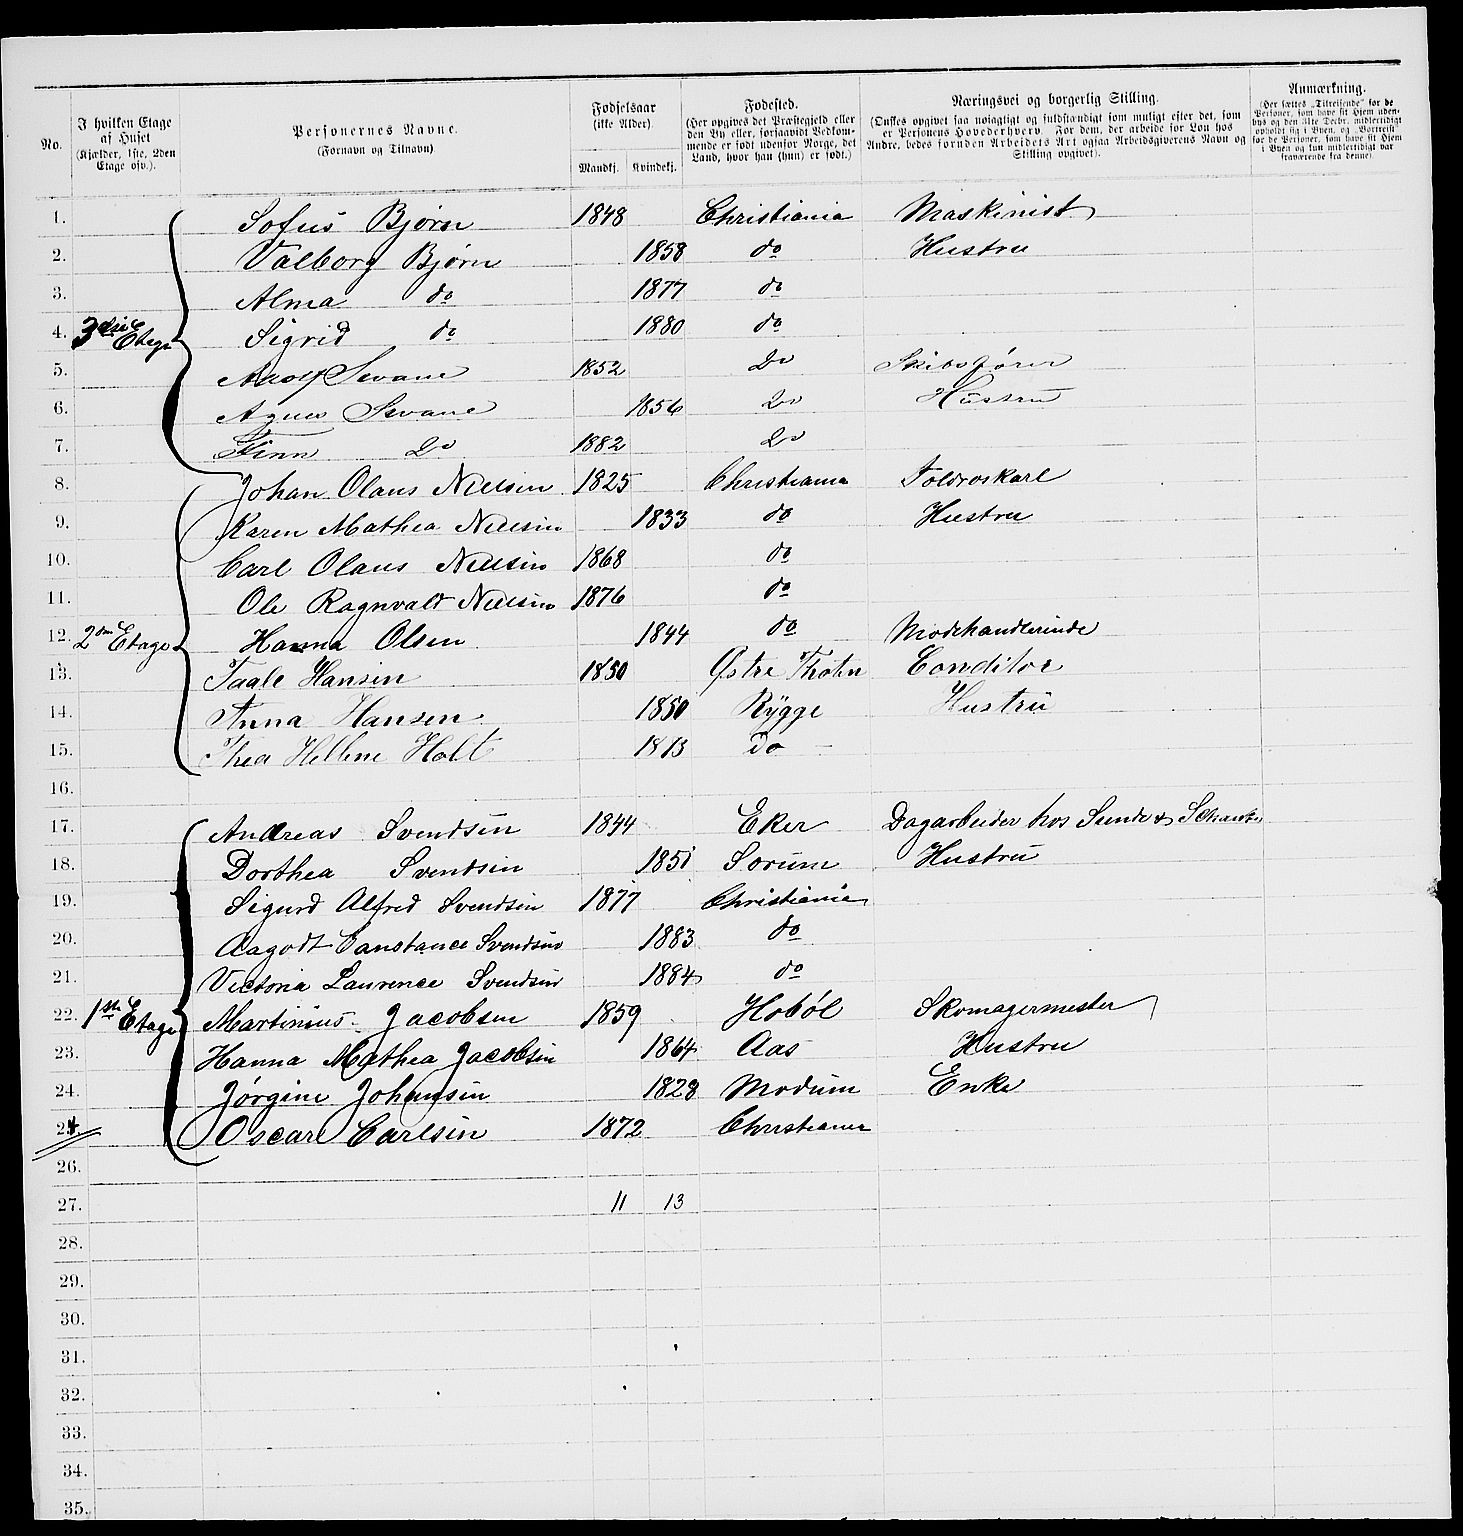 No. | I hvilken Etage af Huset (Kjælder, 1ste, 2den Etage osv.). | Personernes Navne. (Fornavn og Tilnavn). | Fødselsaar (ikke Alder). Mandkj. | Kvindekj. | Fødested. (Her opgives det Præstegjeld eller den By eller, forsaavidt Vedkommende er født udenfor Norge, det Land, hvor han (hun) er født.) | Næringsvei og borgerlig Stilling. (Ønskes opgivet saa nøiagtigt og fuldstændigt som muligt efter det, som er Personens Hovederhverv. For dem, der arbeide for Løn hos Andre, bedes foruden Arbeidets Art ogsaa Arbeidsgiverens Navn og Stilling opgivet). | Anmærkning. (Her sættes „Tilreisende" for de Personer, som have sit Hjem udenbys og den 31te Decbr. midlertidigt opholdt sig i Byen, og „Bortreist" for de Personer, som have sit Hjem i Byen og kun midlertidigt var fraværende fra denne).
1. Sofus Bjørn 1848 Christiania Maskinist
2. Valborg Bjørn 1858 do Hustru
3. Alma do 1877 do
4. 3die Etage Sigrid do 1880 do
5. Adolf Svane 1852 Do Skibsfører
6. Agnes Svane 1856 Do Hustru
7. Finn Do 1882 Do
8. Johan Olaus Nielsen 1825 Christiania Toldroskarl
9. Karen Mathea Nielsen 1833 do Hustru
10. Carl Olaus Nielsen 1868 do
11. Ole Ragnvald Nielsen 1876 do
12. 2den Etage Hanna Olsen 1844 do Modehandlerinde
13. Taale Hansen 1850 Østre Thoten Conditor
14. Anna Hansen 1850 Rygge Hustru
15. Thea Hellene Holt 1873 Do
16.
17. Andreas Svendsen 1844 Eker Dagarbeider hos Sunde &
18. Dorthea Svendsen 1851 Sorum Hustru
19. Sigurd Alfred Svendsen 1877 Christiania
20. Aagodt Constance Svendsen 1883 do
21. Victoria Laurence Svendsen 1884 do
22. 1ste Etage Martinius Jacobsen 1859 Hobøl Skomagermester
23. Hanna Mathea Jacobsen 1864 Aas Hustru
24. Jørgine Johansen 1828 Modum Enke
24. Oscar Carlsen 1872 Christiania
26.
27. 11 13
28.
29.
30.
31.
32.
33.
34.
35.